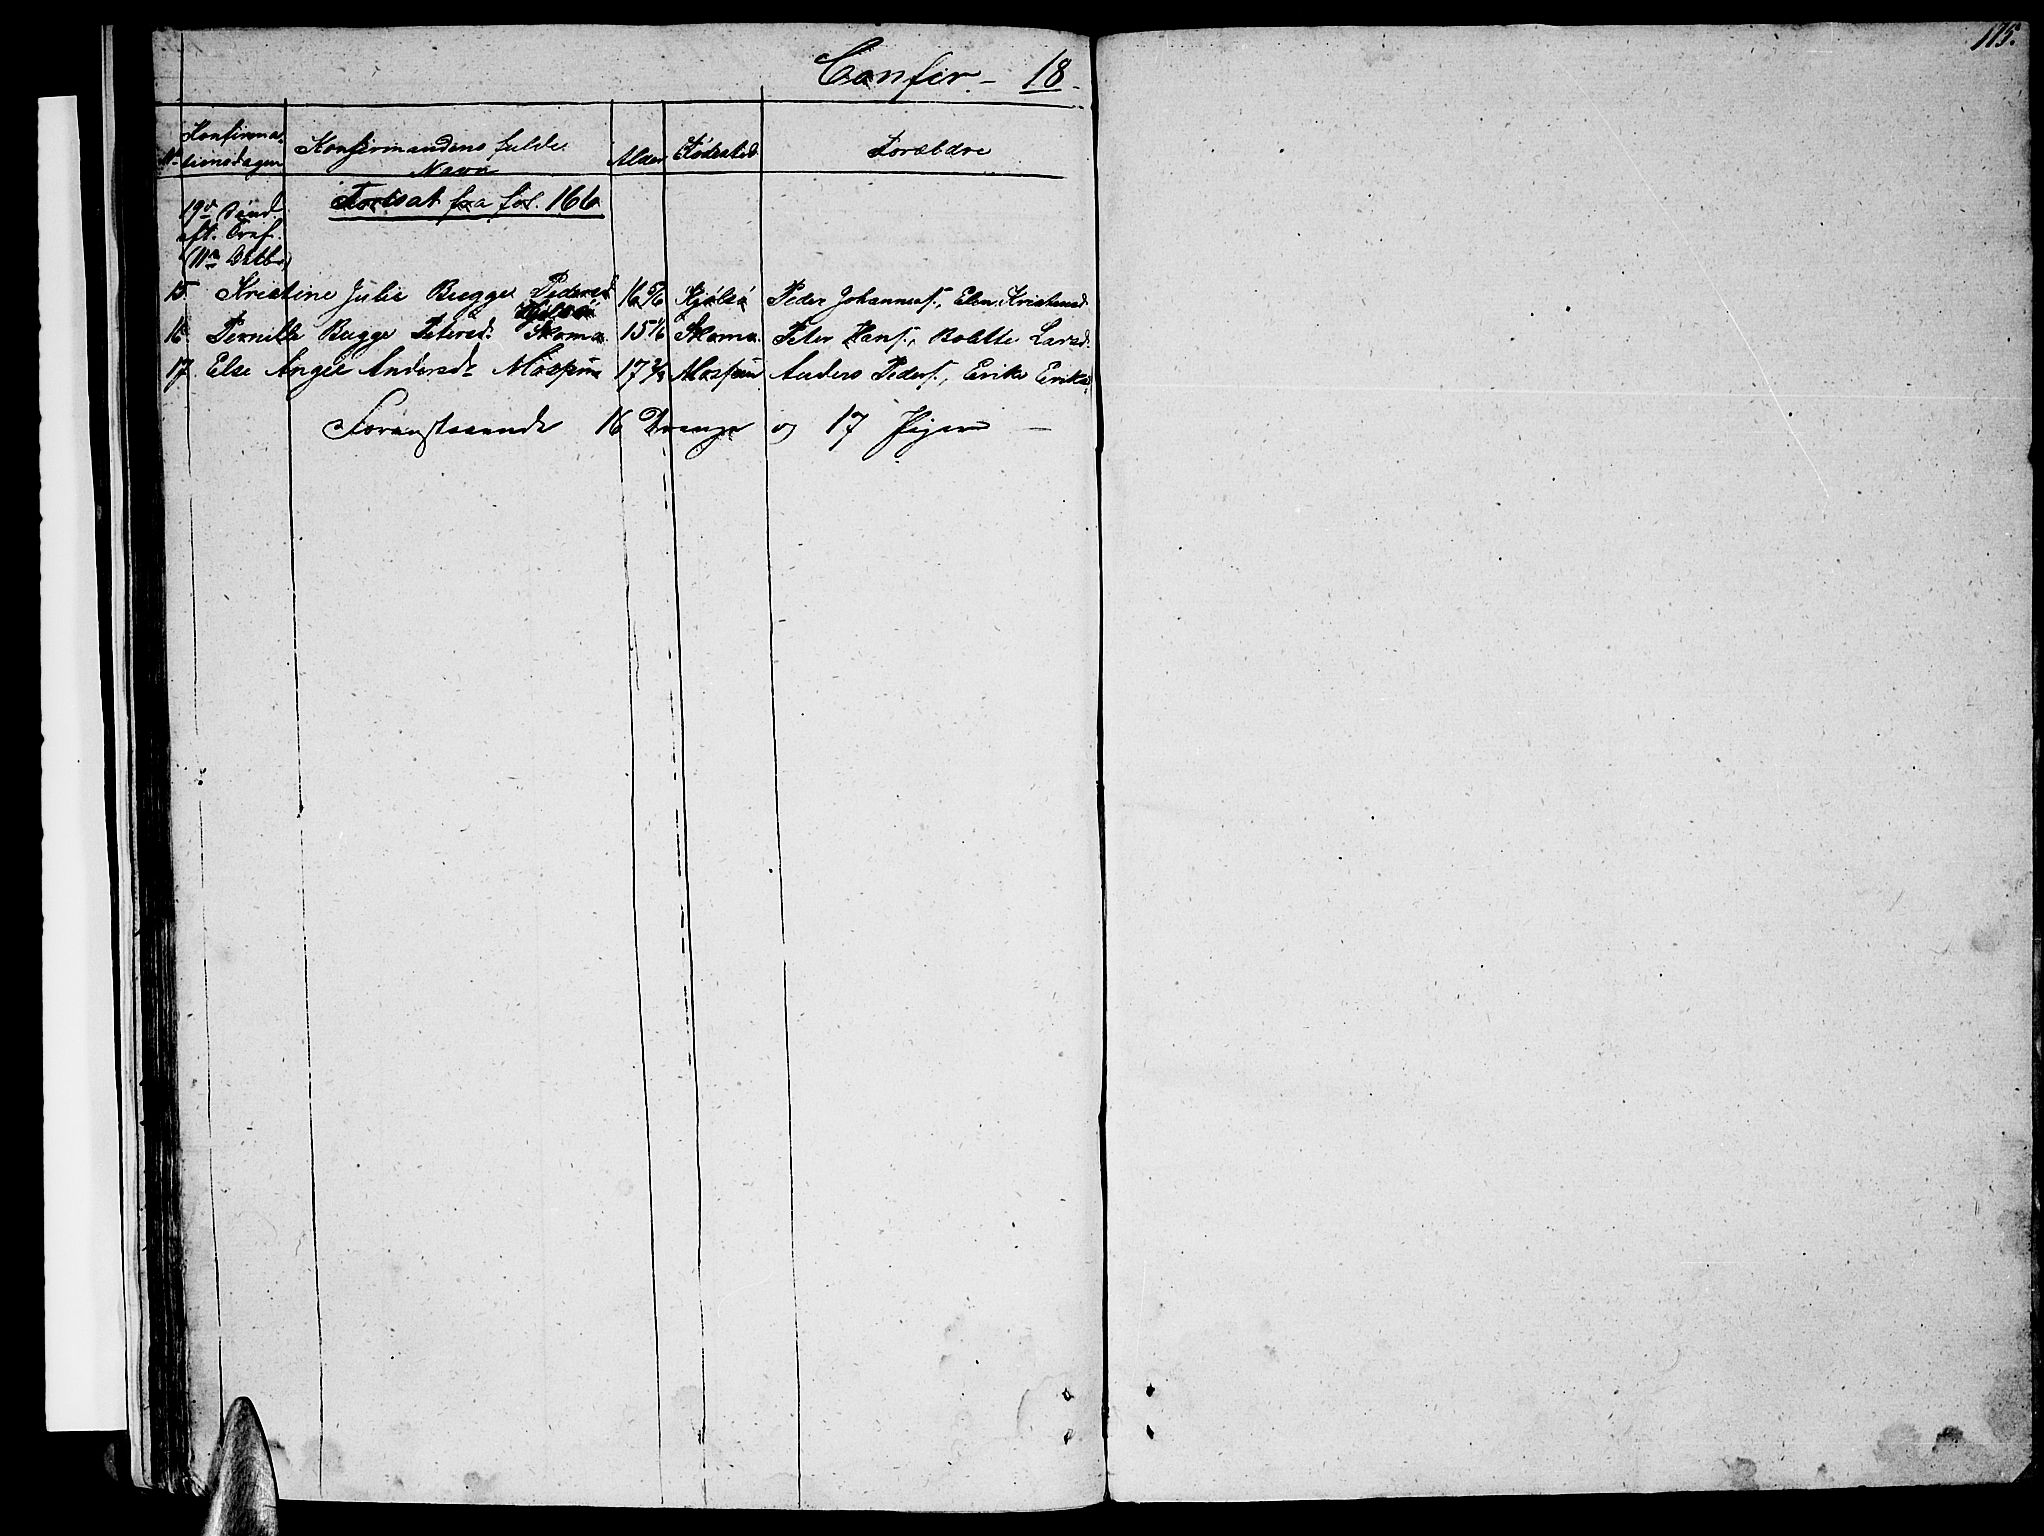 175.
Confir- 18
No Konfirma-
tionsdagen
Konfirmandens fulde
Navn
Alder
Fødested
Forældre
19de Sønd
eft. Tref.
Fortsat fra fol. 166
15 Kristine Julie Bugge Pedersd 16 5/6 Kjølsö Peder Johannes., Elen Kristensd
Kjølsö
16 Pernille Bugge Petersd. Skoma. 15 1/6 Skoma. Peter Hans., Bolette Larsd.
17. Else Angel Andersd. 17 Anders Peders., Erika Eriksd
Foranstaaende 16 Drenge og 17 Piger